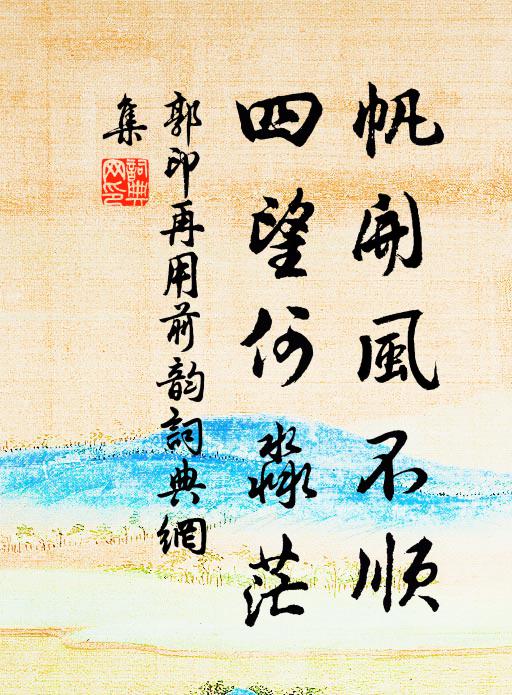 帆開風不順
四望何淼茫
郭印再用前韵詞典網
集
詞典
网印